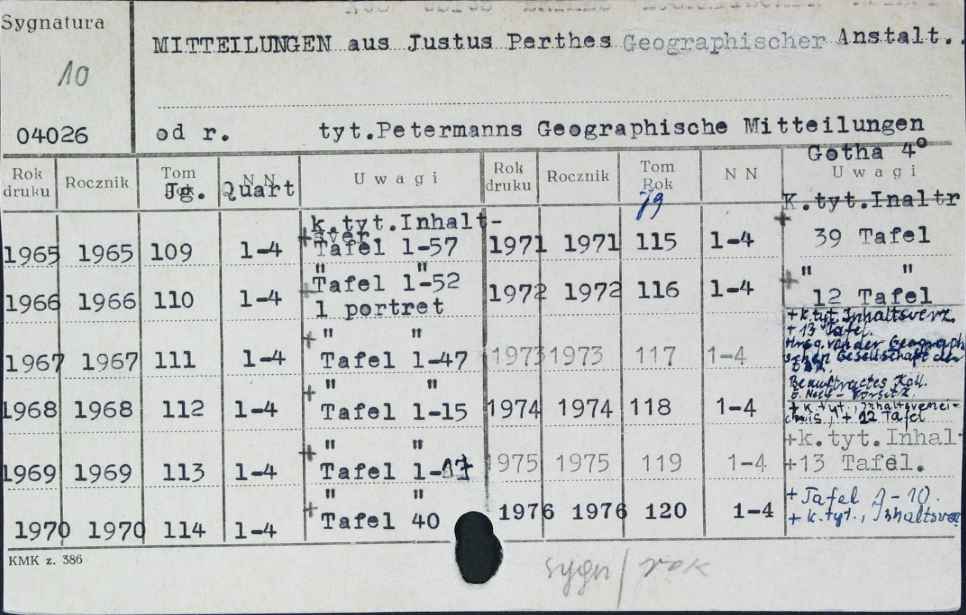 Sygnatura
10
04026
MITTEILUNGEN aus Justus Perthes Geographischer Anstalt.
od r. tyt.Petermanns Geographische Mitteilungen
Gotha 4°
Rok druku Rocznik Tom Jg. NN Quart Uwagi Rok druku Rocznik Tom Rok Jg NN Uwagi
k.tyt.Inhalt- K.tyt.Inaltr
1965 1965 109 1-4 + Tafel 1-57 1971 1971 115 1-4 + 39 Tafel
" " " "
1966 1966 110 1-4 + Tafel 1-52 1972 1972 116 1-4 + 12 Tafel
1 portret
+ k.tyt. Inhaltsverz.
+ 13 Tafel.
+ " " Hrsg. von der Geograph
1967 1967 111 1-4 Tafel 1-47 1973 1973 117 1-4 schen Gesellschaft der
DDR.
+ " " Beauftragtes Koll.
1968 1968 112 1-4 Tafel 1-15 1974 1974 118 1-4 + k. tyt., Inhaltsverzei-
+ 12 Tafel
+ " " +k.tyt.Inhal-
1969 1969 113 1-4 Tafel 1-17 1975 1975 119 1-4 +13 Tafel.
" " + Tafel 1-10.
1970 1970 114 1-4 + Tafel 40 1976 1976 120 1-4 + k.tyt., Inhaltsver
KMK z. 386
sygn/